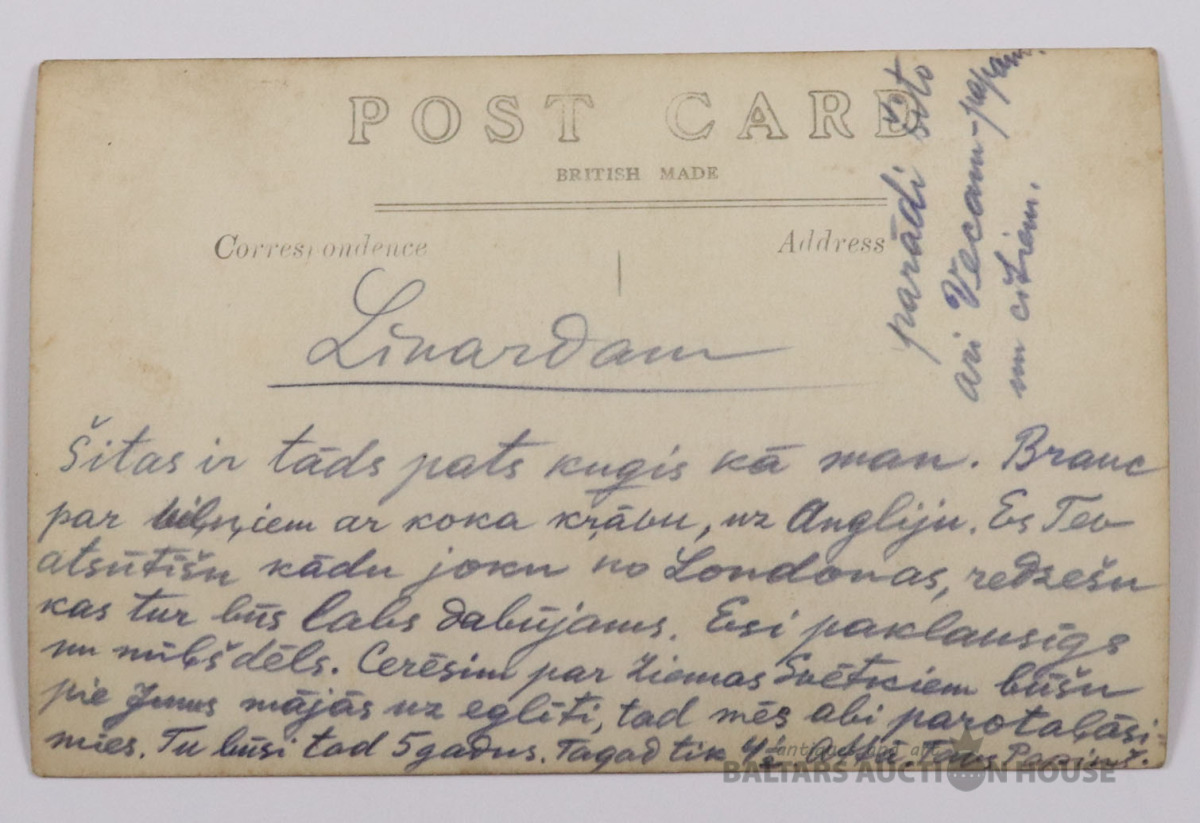 POST CARD
BRITISH MADE
Correspondence
Address
parādi šito
ari Vecam-papam
un citiem.
Linardam
Šitas ir tāds pats kuģis kā man. Brauc
par viļņiem ar koka kŗāvu, uz Angliju. Es Tev
atsūtīšu kādu joku no Londonas, redzešu
kas tur būs labs dabūjams. Esi paklausīgs
un mīļš dēls. Cerēsim par Ziemas Svētkiem būšu
pie Jums mājās uz eglīti, tad mēs abi parotaļāsi-
mies. Tu būsi tad 5 gadus. Tagad tik 4½. Attā. Tavs Papiņš.
antiques and art
BALTARS AUCTION HOUSE